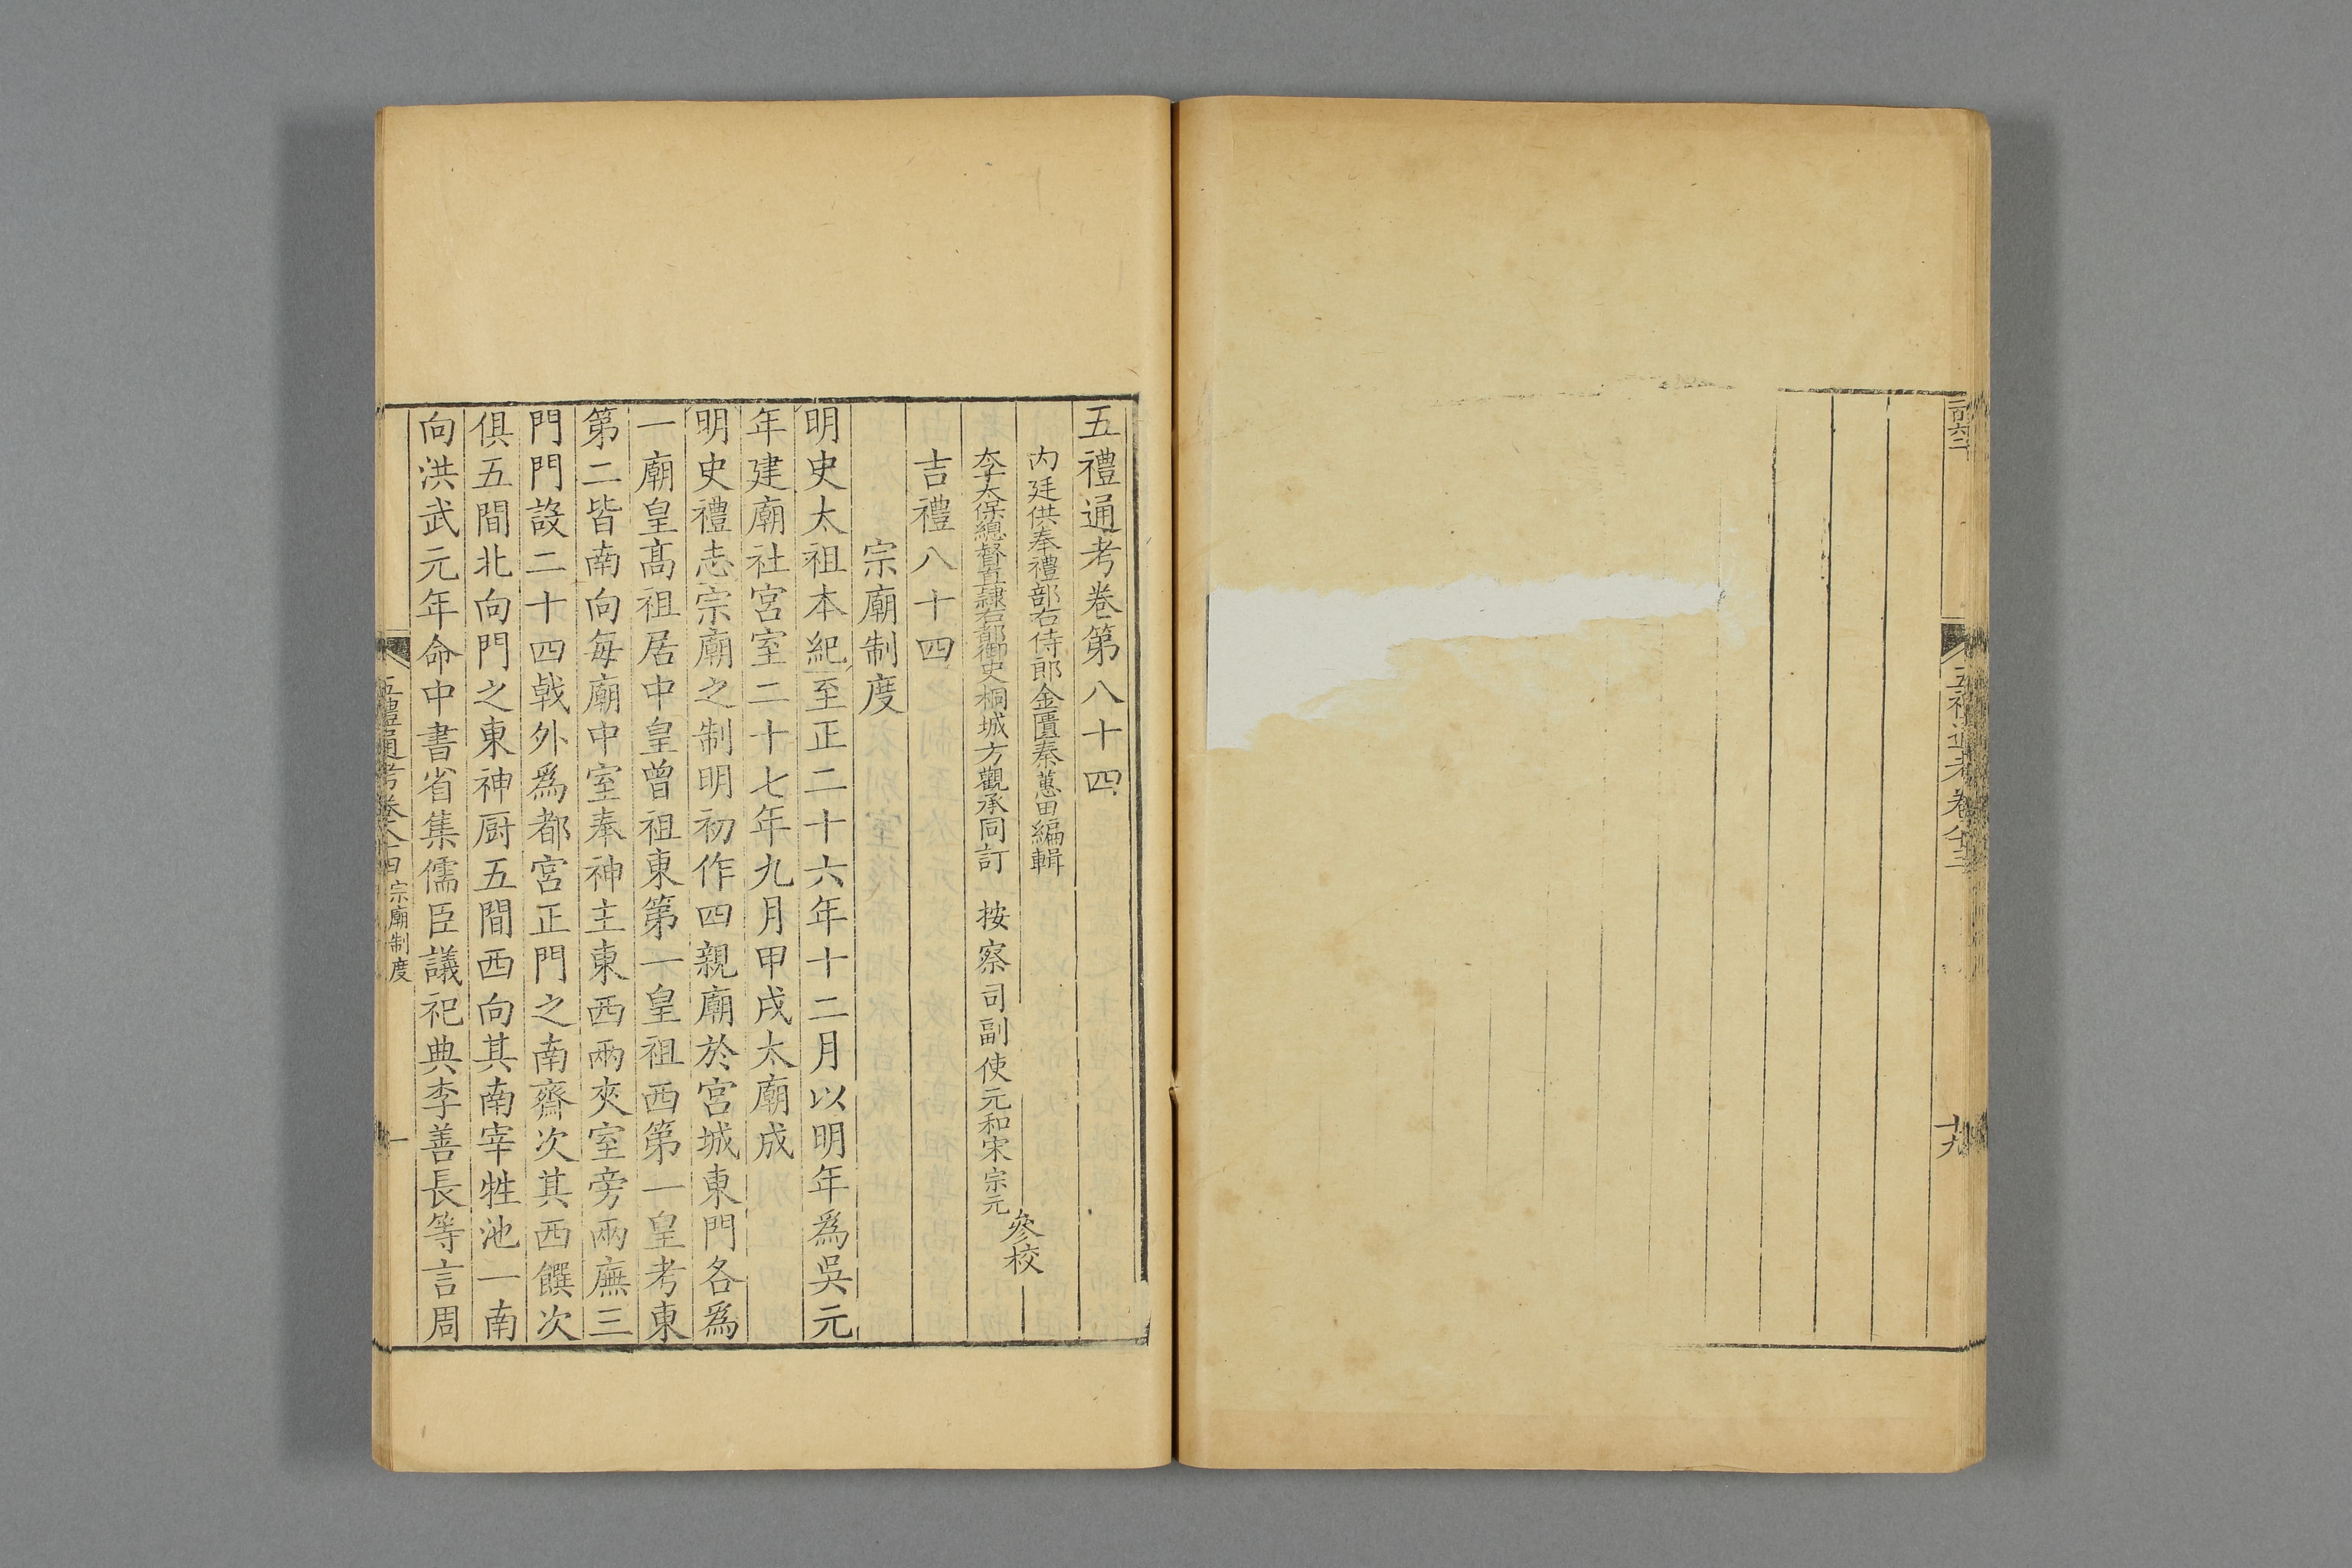 二百六二
十九
五禮通考卷第八十四
内廷供奉禮部右侍郎金匱秦蕙田編輯
太子太保總督直隸右都御史桐城方觀承同訂
按察司副使元和宋宗元
參校
吉禮八十四
宗廟制度
明史太祖本紀至正二十六年十二月以明年爲吳元
年建廟社宮室二十七年九月甲戌太廟成
明史禮志宗廟之制明初作四親廟於宮城東門各爲
一廟皇高祖居中皇曾祖東第一皇祖西第一皇考東
第二皆南向每廟中室奉神主東西兩夾室旁兩廡三
門門設二十四戟外爲都宮正門之南齋次其西饌次
俱五間北向門之東神厨五間西向其南宰牲池一南
向洪武元年命中書省集儒臣議祀典李善長等言周
五禮通考卷八十四
宗廟制度
一